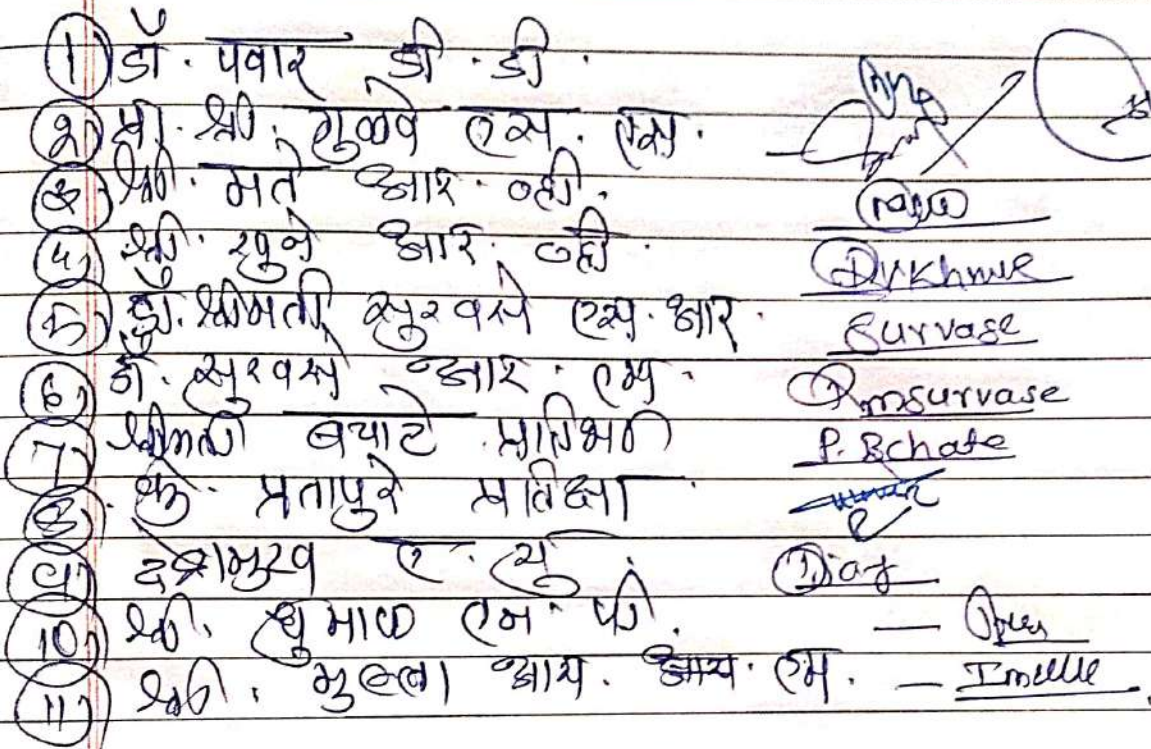 1) डॉ. पवार डी. डी.
2) प्रा. श्री. गुळवे एस. एस.
3) श्री. मते आर. व्ही.
4) श्री. खुने आर. व्ही.
5) डॉ. श्रीमती सुरवसे एस. आर. Survase
6) डॉ. सुरवसे आर. एम. Rmsurvase
7) श्रीमती बचाटे P. Bchate
8) कु. प्रतापुरे प्रतिक्षा
9) देशमुख ए. यु.
10) श्री. धुमाळ एम. पी.
11) श्री. मुल्ला आय. आय. एम.